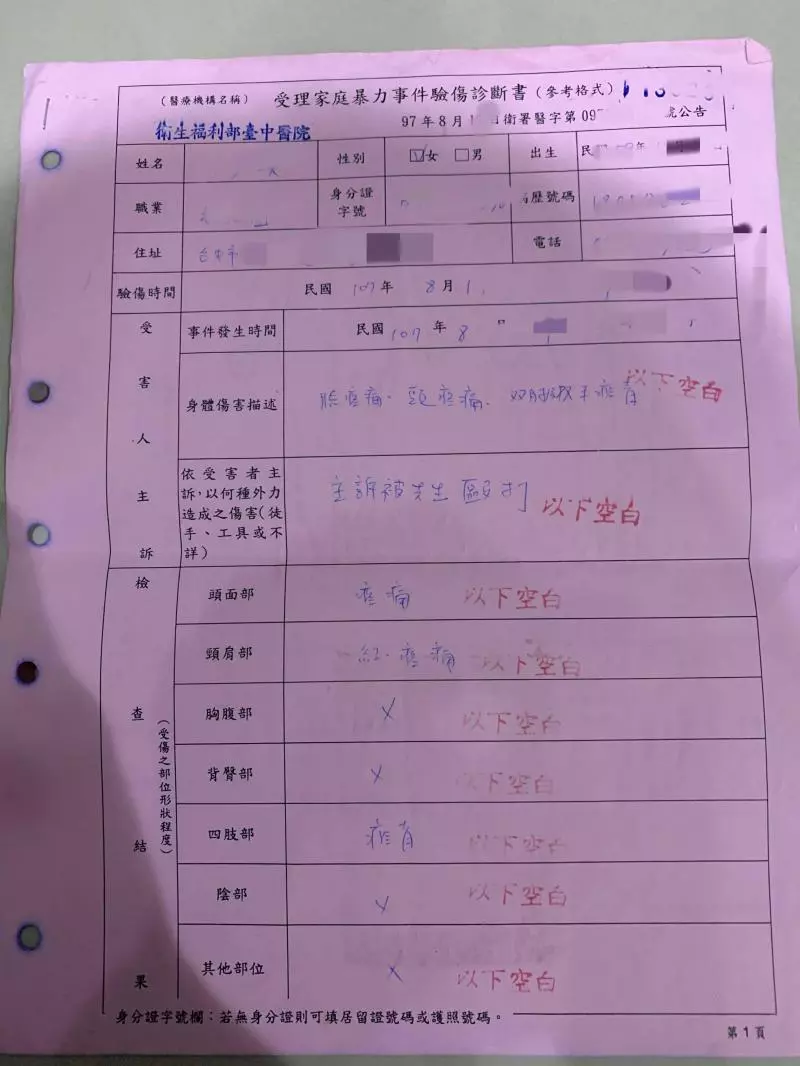 (醫療機構名稱) 受理家庭暴力事件驗傷診斷書(參考格式)
衛生福利部臺中醫院 97年8月1 日衛署醫字第09 號公告
姓名 性別 ☑女 □男 出生 民 年
職業 身分證字號 病歷號碼
住址 台中市 電話
驗傷時間 民國 107年 8月1
受害人主訴
事件發生時間 民國 107年 8
身體傷害描述 臉疼痛、頸疼痛、双 瘀青 以下空白
依受害者主訴,以何種外力造成之傷害(徒手、工具或不詳) 主訴被先生毆打 以下空白
檢查結果(受傷之部位形狀程度)
頭面部 疼痛 以下空白
頸肩部 紅、疼痛 以下空白
胸腹部 X 以下空白
背臀部 X 以下空白
四肢部 瘀青 以下空白
陰部 X 以下空白
其他部位 X 以下空白
身分證字號欄:若無身分證則可填居留證號碼或護照號碼。
第1頁